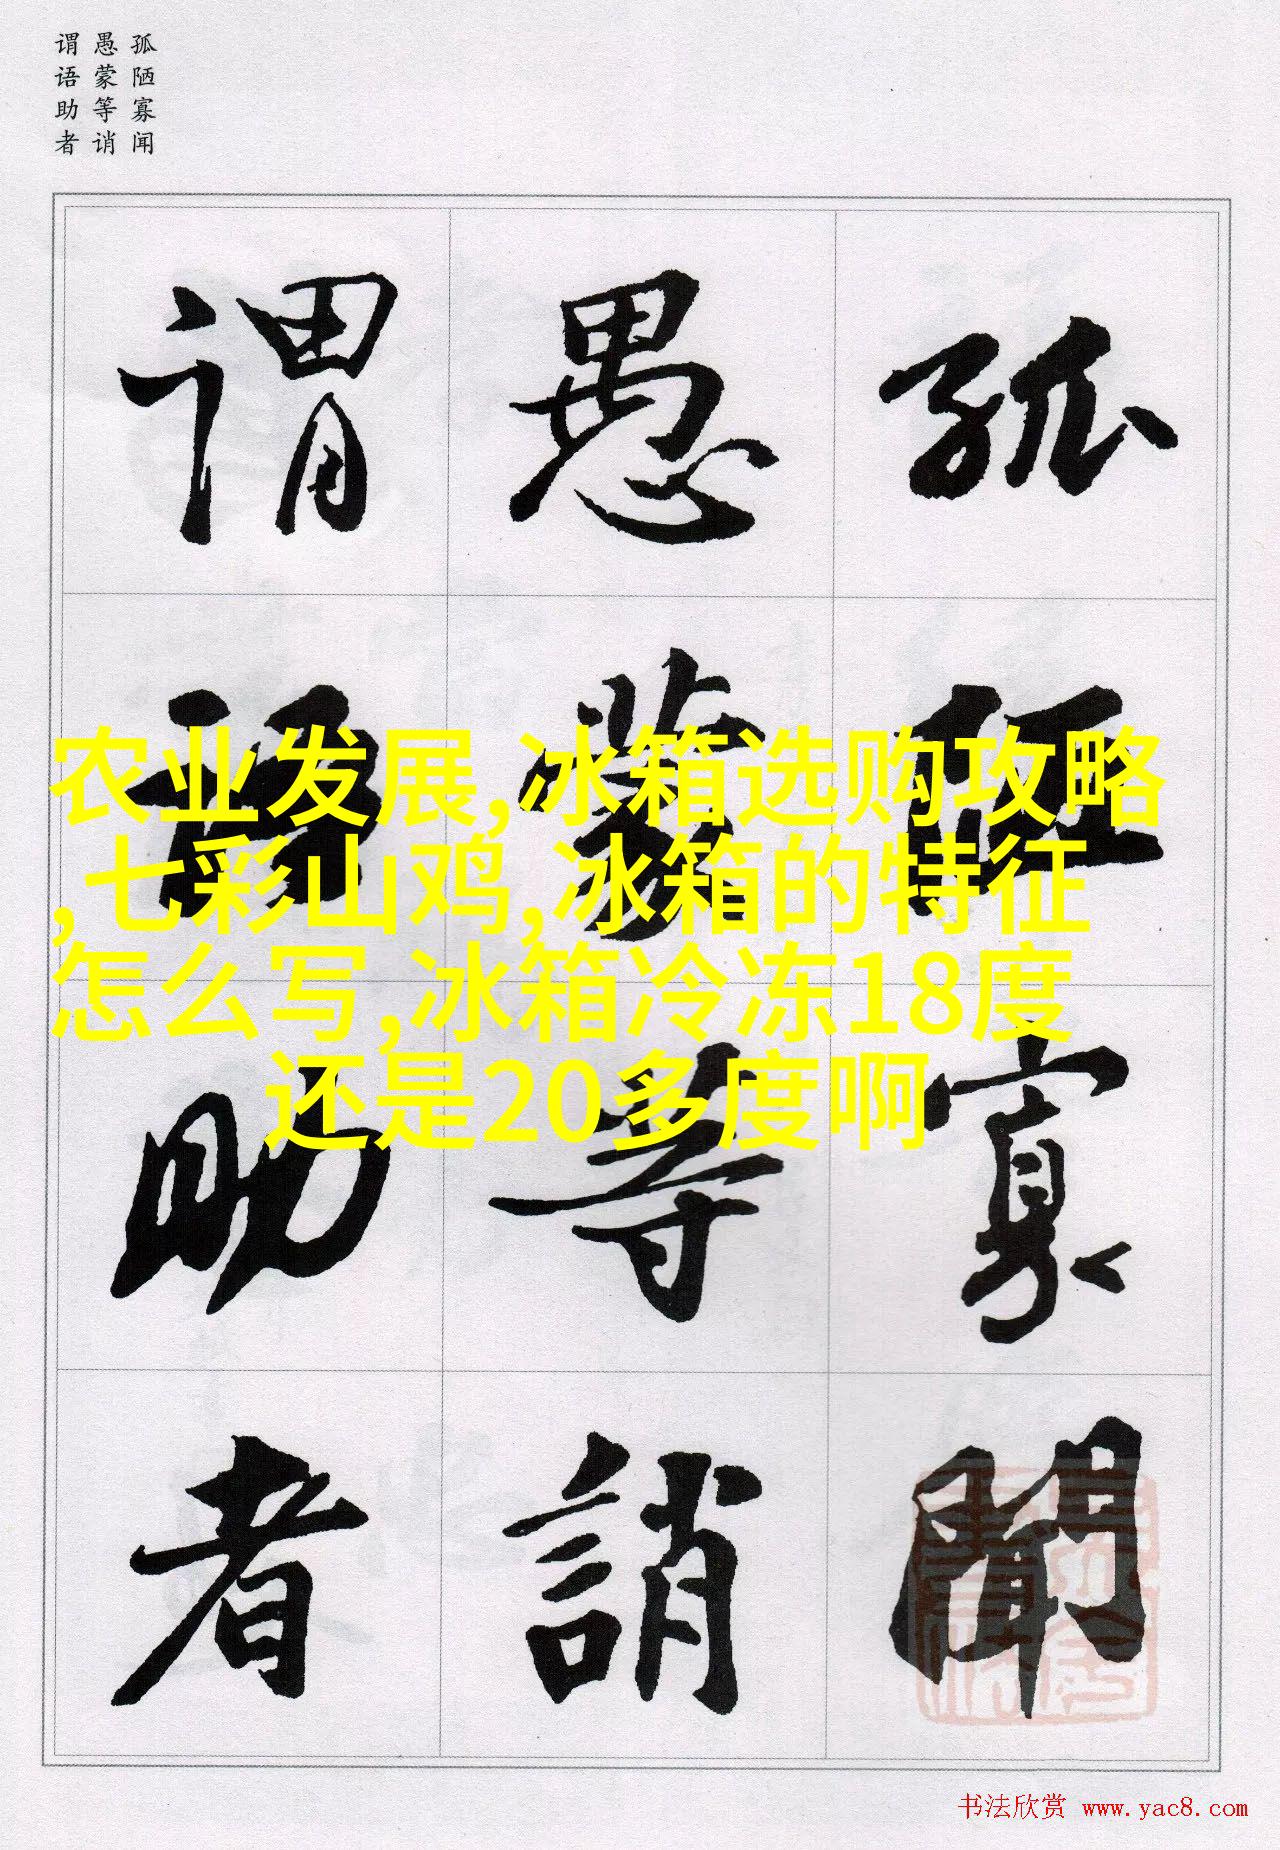 孤陋寡闻
愚蒙等诮
谓语助者
孤陋寡聞
愚蒙等誚
謂語助者
农业发展,冰箱选购攻略
,七彩山鸡,冰箱的特征
怎么写,冰箱冷冻18度
还是20多度啊
书法欣赏 www.yac8.com